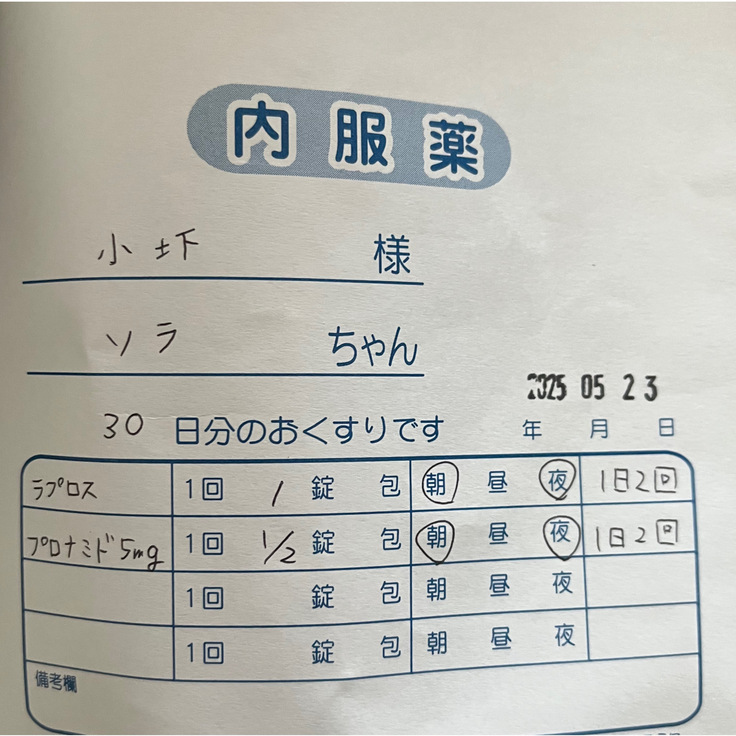 内服薬
小圷 様
ソラ ちゃん
2025 05 23
30 日分のおくすりです 年 月 日
ラプロス 1回 1 錠 包 朝 昼 夜 1日2回
プロナミド5mg 1回 1/2 錠 包 朝 昼 夜 1日2回
1回 錠 包 朝 昼 夜
1回 錠 包 朝 昼 夜
備考欄